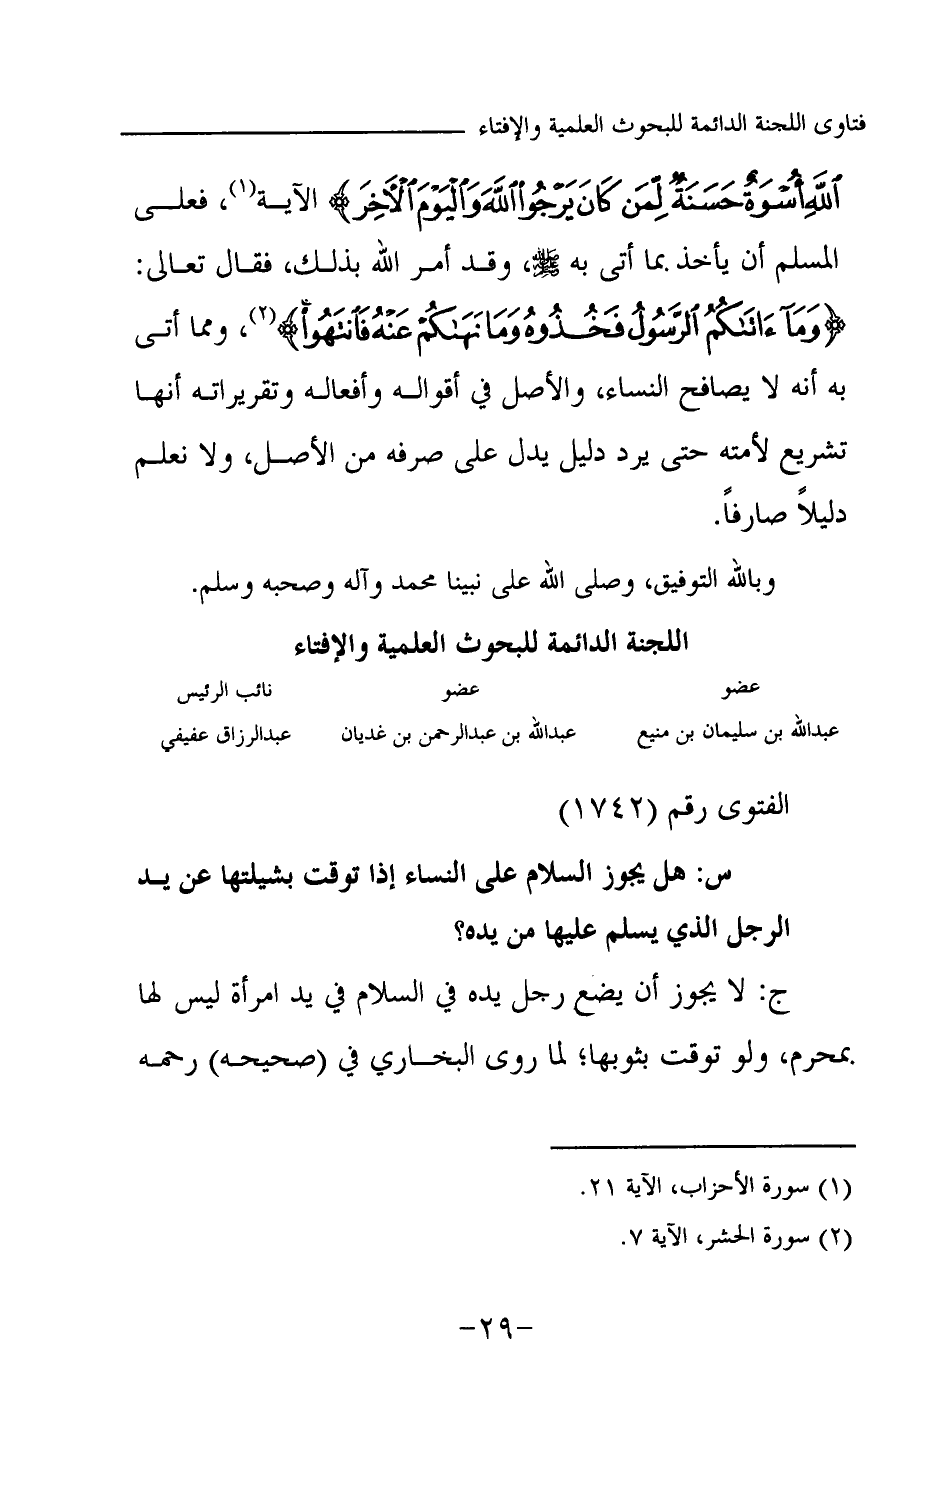 فتاوى اللجنة الدائمة للبحوث العلمية والإفتاء
ٱللَّهِ أُسْوَةٌ حَسَنَةٌ لِّمَن كَانَ يَرْجُوا۟ ٱللَّهَ وَٱلْيَوْمَ ٱلْآخِرَ﴾ الآيـة(١)، فعلـى
المسلم أن يأخذ بما أتى به ﷺ، وقـد أمـر الله بذلـك، فقـال تعـالى:
﴿وَمَآ ءَاتَىٰكُمُ ٱلرَّسُولُ فَخُـذُوهُ وَمَا نَهَىٰكُمْ عَنْهُ فَٱنتَهُوا۟ۚ﴾(٢)، ومما أتـى
به أنه لا يصافح النساء، والأصل في أقوالـه وأفعالـه وتقريراتـه أنهـا
تشريع لأمته حتى يرد دليل يدل على صرفه من الأصـل، ولا نعلـم
دليلاً صارفاً.
وبالله التوفيق، وصلى الله على نبينا محمد وآله وصحبه وسلم.
اللجنة الدائمة للبحوث العلمية والإفتاء
عضو عضو نائب الرئيس
عبدالله بن سليمان بن منيع عبدالله بن عبدالرحمن بن غديان عبدالرزاق عفيفي
الفتوى رقم (١٧٤٢)
س: هل يجوز السلام على النساء إذا توقت بشيلتها عن يـد
الرجل الذي يسلم عليها من يده؟
ج: لا يجوز أن يضع رجل يده في السلام في يد امرأة ليس لها
بمحرم، ولو توقت بثوبها؛ لما روى البخـاري في (صحيحـه) رحمـه
(١) سورة الأحزاب، الآية ٢١.
(٢) سورة الحشر، الآية ٧.
-٢٩-